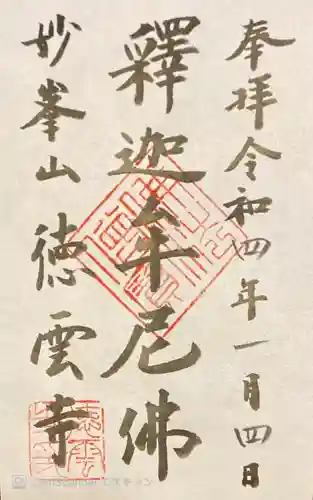 奉拝令和四年一月四日
釋迦牟尼佛
妙峯山徳雲寺